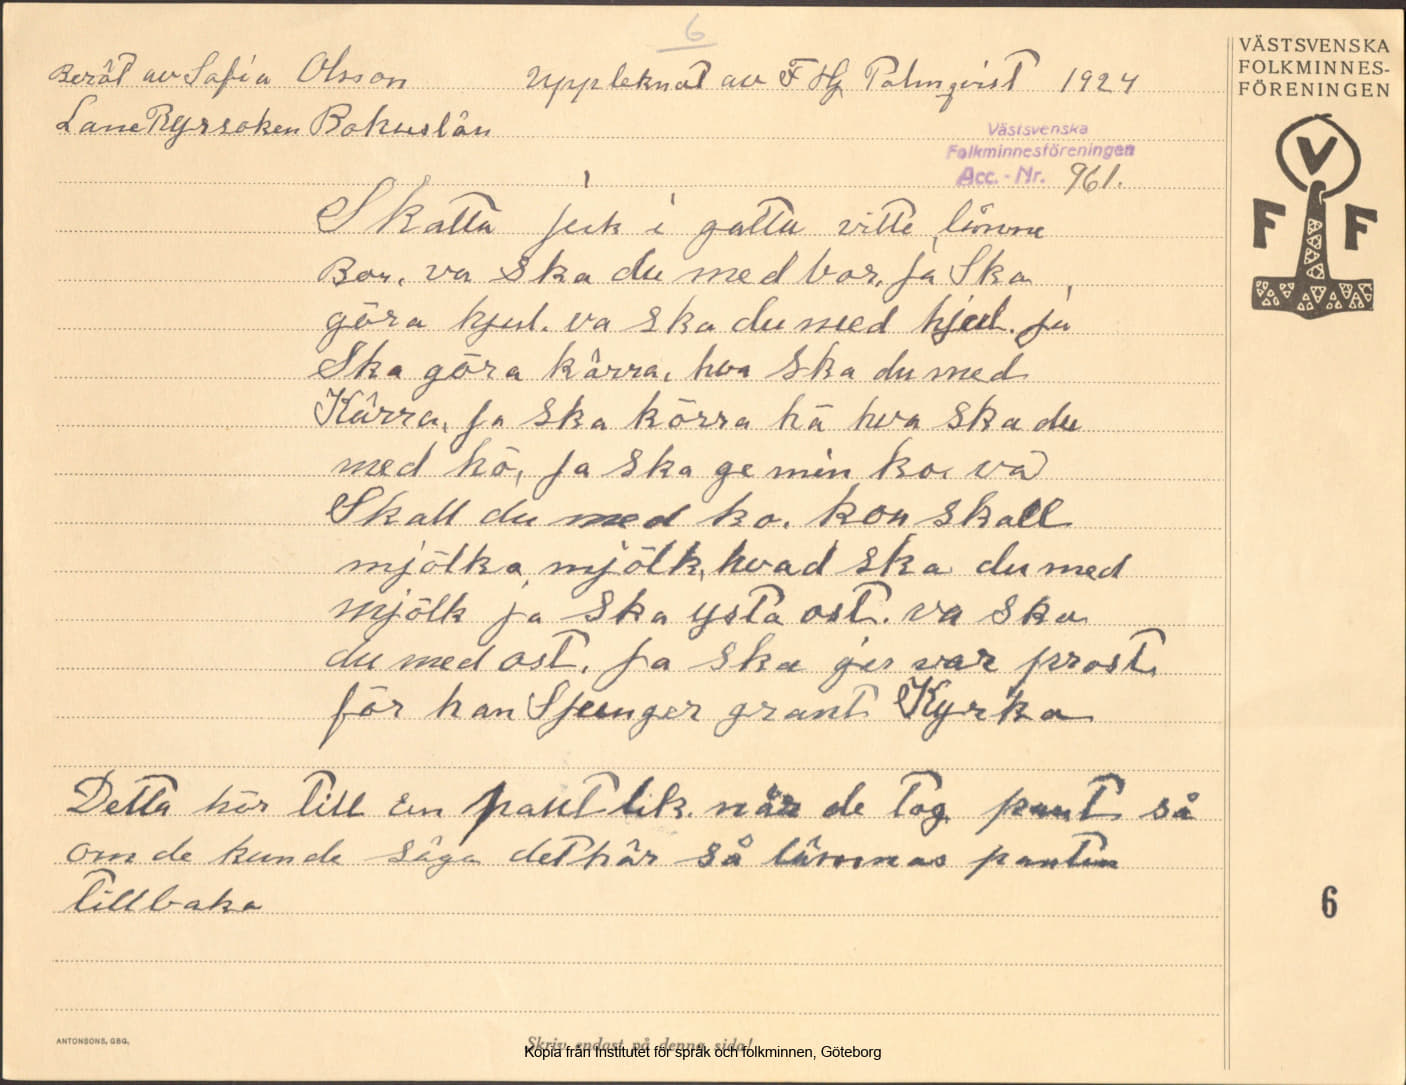 6
Berät av Safia Olsson Uppteknat av F Hj Palmqvist 1924
Lane Ryrsoken Bohuslän
VÄSTSVENSKA
FOLKMINNES-
FÖRENINGEN
V
F F
Västsvenska
Folkminnesföreningen
Acc. - Nr. 961.
Skatta jeck i gatta vitte, lönne
Bor. va ska du med bor, ja Ska
göra hjul. va ska du med hjul. ja
Ska göra kärra, hva Ska du med
Kärra, ja ska körra hä hva ska du
med hö, ja ska ge min ko. va
Skall du med ko. kon skall
mjölka mjölk, hvad ska du med
mjölk ja ska ysta ost. va Ska
du med ost. ja Ska ger var prost.
för han Sjunger grant Kyrka
Detta hör till en pantlik. när de tog pant så
om de kunde säga dethär så lämnas panten
tillbaka
6
ANTONSONS, GBG.
Skriv endast på denna sida!
Kopia från Institutet för språk och folkminnen, Göteborg